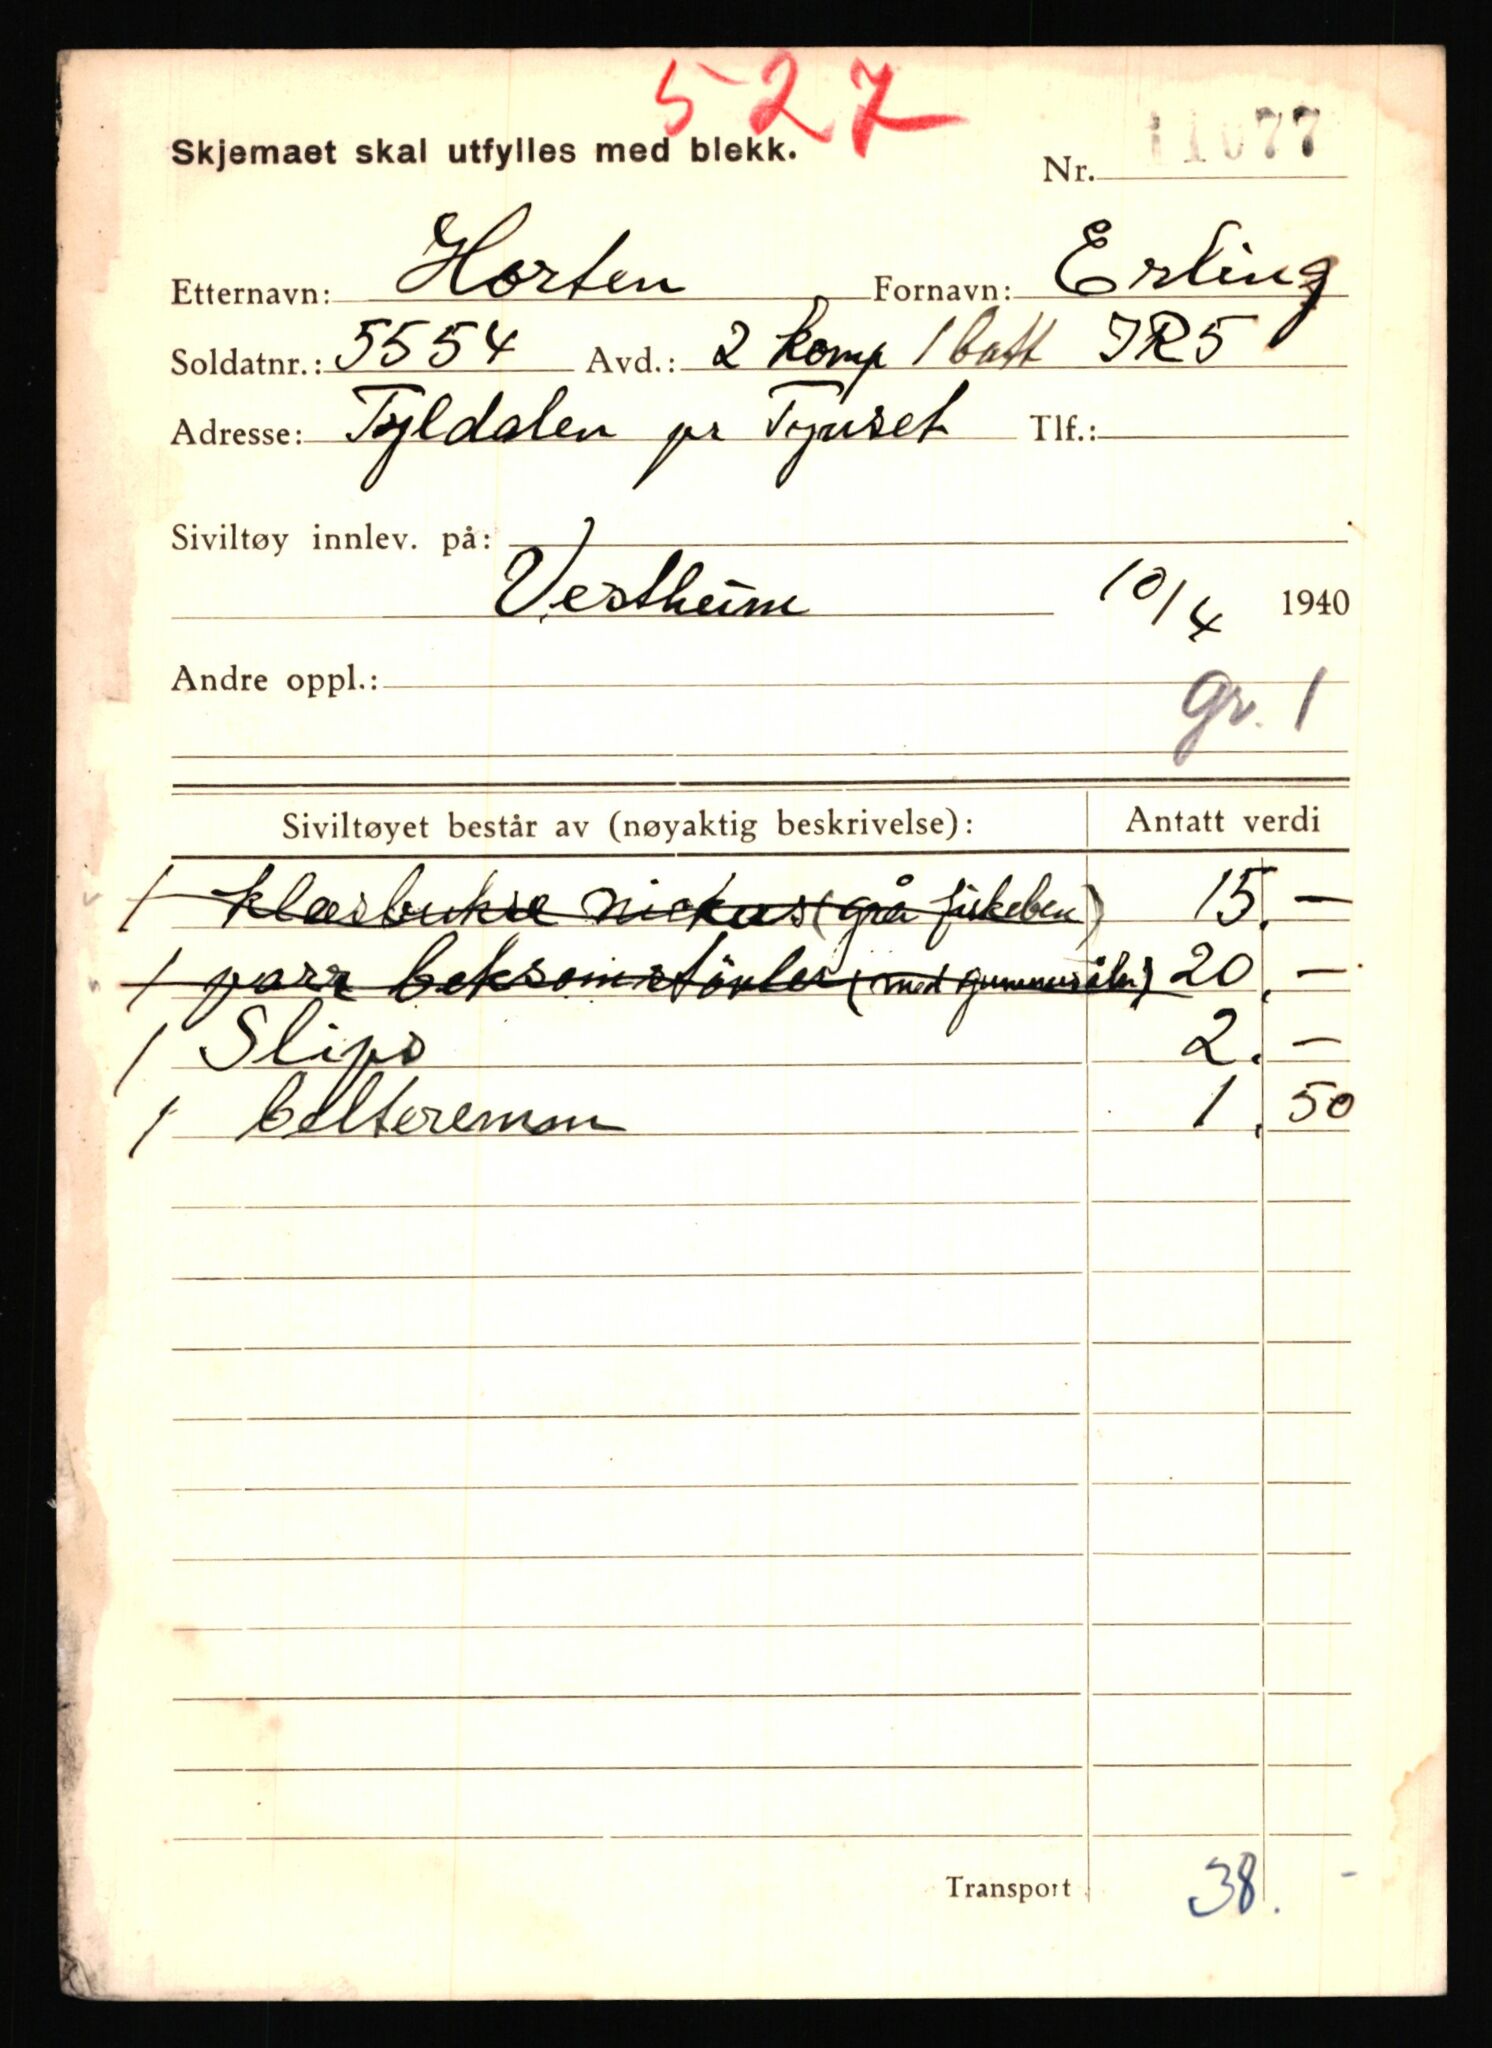 527
Skjemaet skal utfylles med blekk.
Nr. 11077
Etternavn: Horten Fornavn: Erling
Soldatnr.: 5554 Avd.: 2 komp 1 batt IR5
Adresse: Tyldalen pr Tynset Tlf.:
Siviltøy innlev. på:
Vestheim 10/4 1940
Andre oppl.:
gr. 1
Siviltøyet består av (nøyaktig beskrivelse): Antatt verdi
1 klæsbukse nickas (grå fiskeben) 15. —
1 parr beksømstövler (med gummisåler) 20. —
1 Slips 2. —
1 belterem 1. 50
Transport 38. -